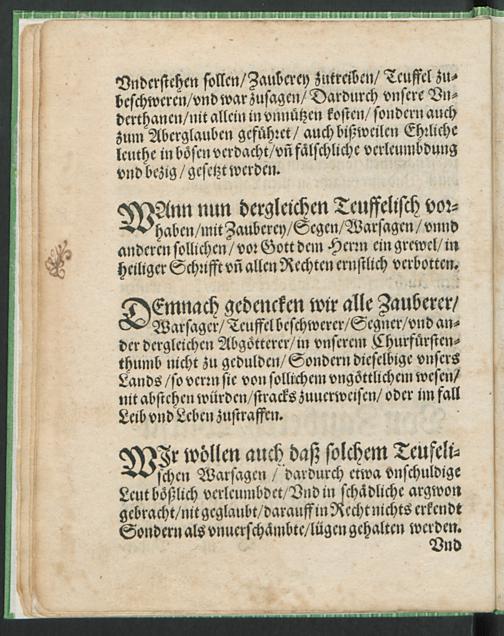 Vnderstehen sollen/ Zauberey zutreiben/ Teuffel zu-
beschweren/ vnd war zusagen/ Dardurch vnsere Vn-
derthanen/ nit allein in vnnützen kosten/ sondern auch
zum Aberglauben geführet/ auch bißweilen Ehrliche
leuthe in bösen verdacht/ vñ fälschliche verleumbdung
vnd bezig/ gesetzt werden.
WAnn nun dergleichen Teuffelisch vor-
haben/ mit Zauberey/ Segen/ Warsagen/ vnnd
anderen sollichen/ vor Gott dem Herrn ein grewel/ in
heiliger Schrifft vñ allen Rechten ernstlich verbotten.
DEmnach gedencken wir alle Zauberer/
Warsager/ Teuffel beschwerer/ Segner/ vnd an-
der dergleichen Abgötterer/ in vnserem Churfürsten-
thumb nicht zu gedulden/ Sondern dieselbige vnsers
Lands/ so verrn sie von sollichem vngöttlichem wesen/
nit abstehen würden/ stracks zuuerweisen/ oder im fall
Leib vnd Leben zustraffen.
WIr wöllen auch daß solchem Teufeli-
schen Warsagen/ dardurch etwa vnschuldige
Leut bößlich verleumbdet/ Vnd in schädliche argwon
gebracht/ nit geglaubt/ darauff in Recht nichts erkendt
Sondern als vnuerschämbte/ lügen gehalten werden.
Vnd